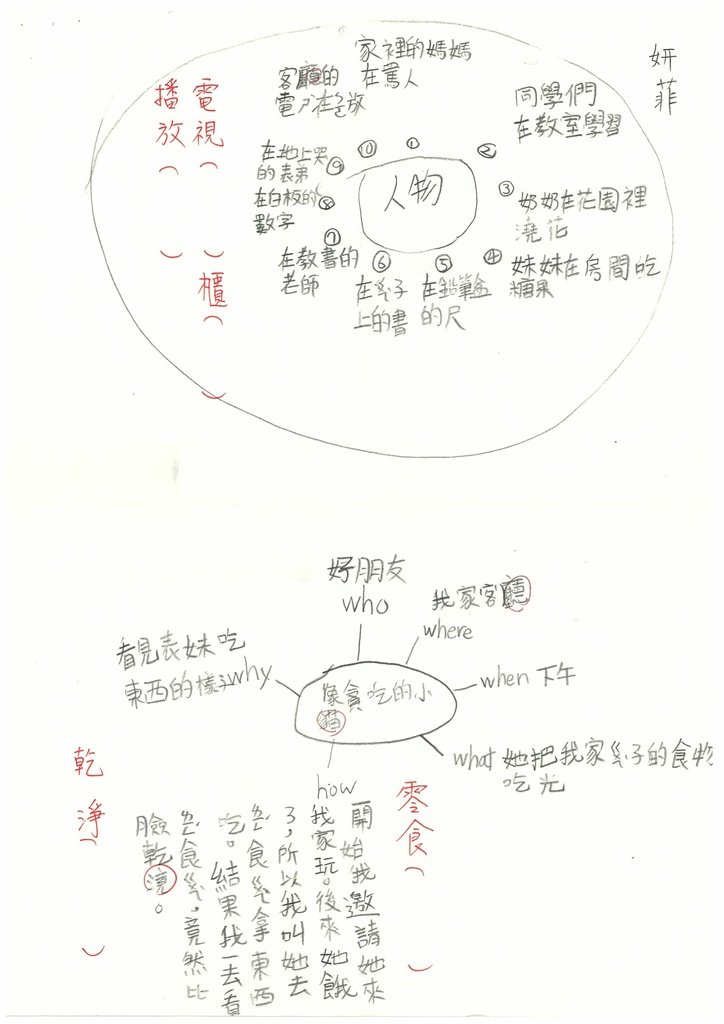 妍菲
人物
①
家裡的媽媽
在罵人
②
同學們
在教室學習
③
奶奶在花園裡
澆花
④
妹妹在房間吃
糖果
⑤
在鉛筆盒
的尺
⑥
上的書
⑦
在教書的
老師
⑧
在白板的
數字
⑨
在地上哭
的表弟
⑩
客廳的
電視( )
播放( )
櫃( )
像貪吃的小
貓
好朋友
who
我家客廳
where
when 下午
what 她把我家ㄍㄨㄟˋ子的食物
吃光
how
一開始我邀請她來
我家玩。後來她餓
了,所以我叫她去
吃。結果我一去看
臉乾淨。
看見表妹吃
東西的樣子why
零食( )
乾淨( )